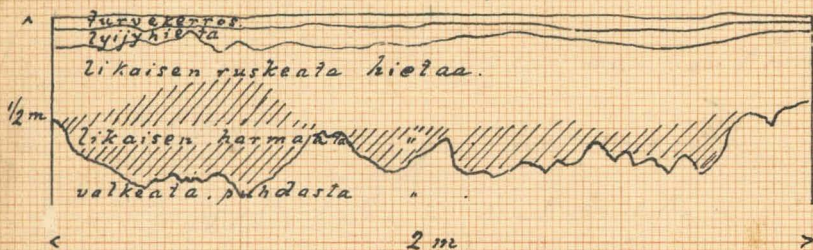 turvekerros.
lyijyhieta
likaisen ruskeata hietaa.
1/2 m
likaisen harmaata "
valkeata, puhdasta " .
2 m